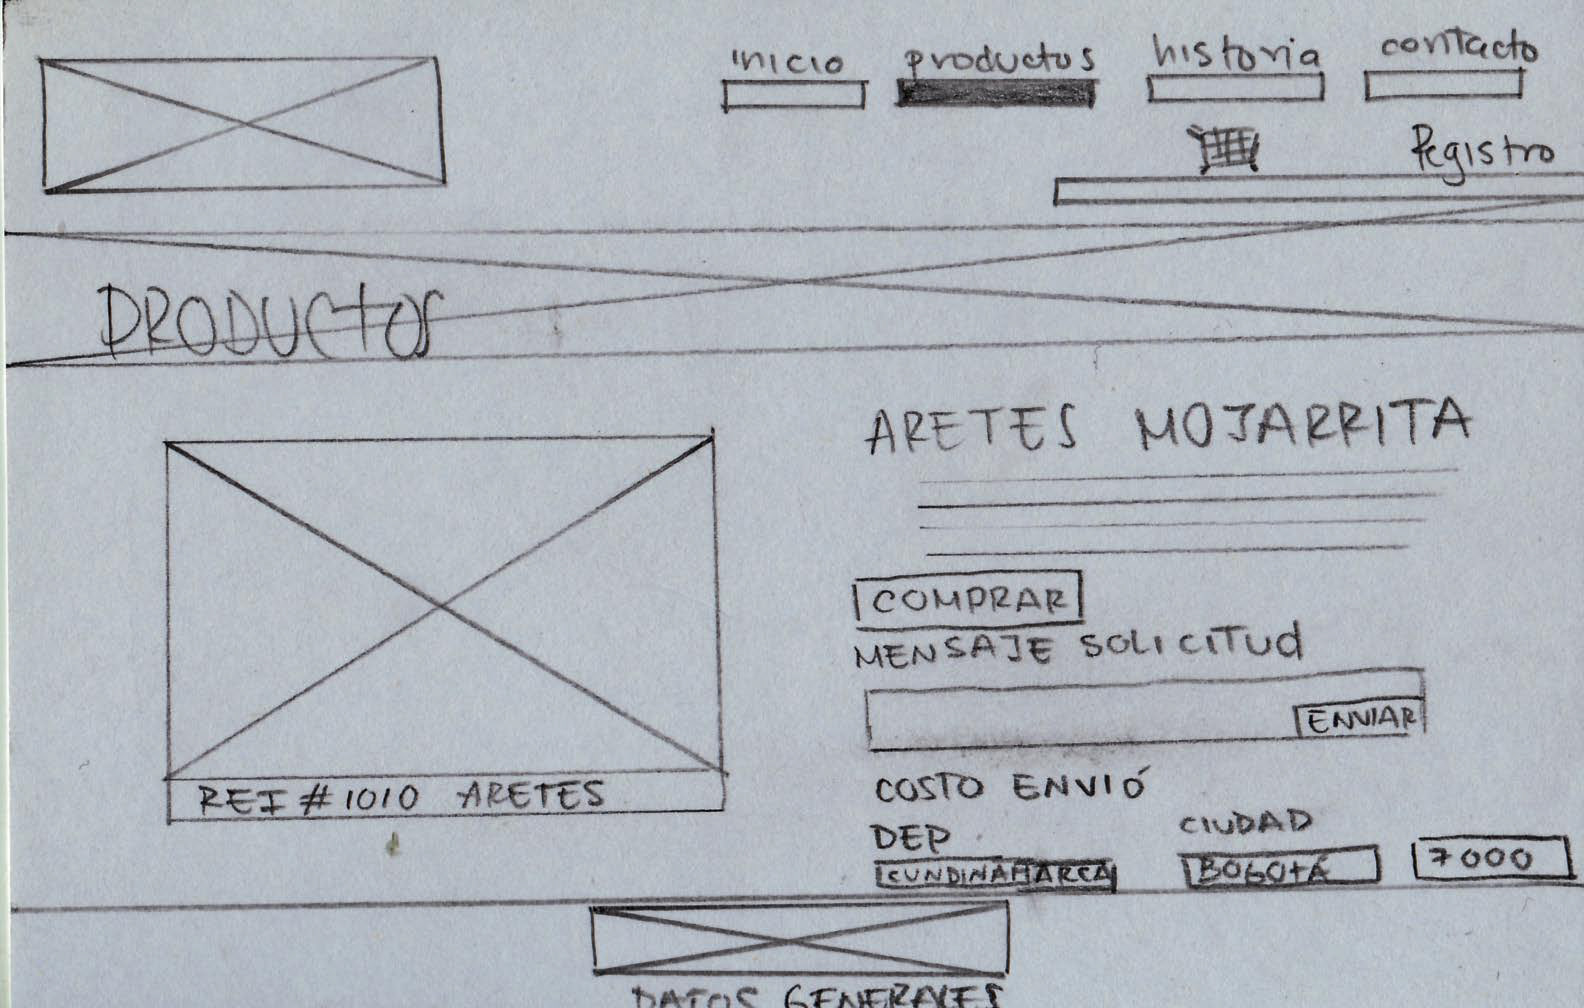 inicio productos historia contacto
Registro
PRODUCTOS
ARETES MOJARRITA
COMPRAR
MENSAJE SOLICITUD
ENVIAR
REF #1010 ARETES
COSTO ENVIÓ
DEP CIUDAD
CUNDINAMARCA BOGOTÁ 7000
DATOS GENERALES